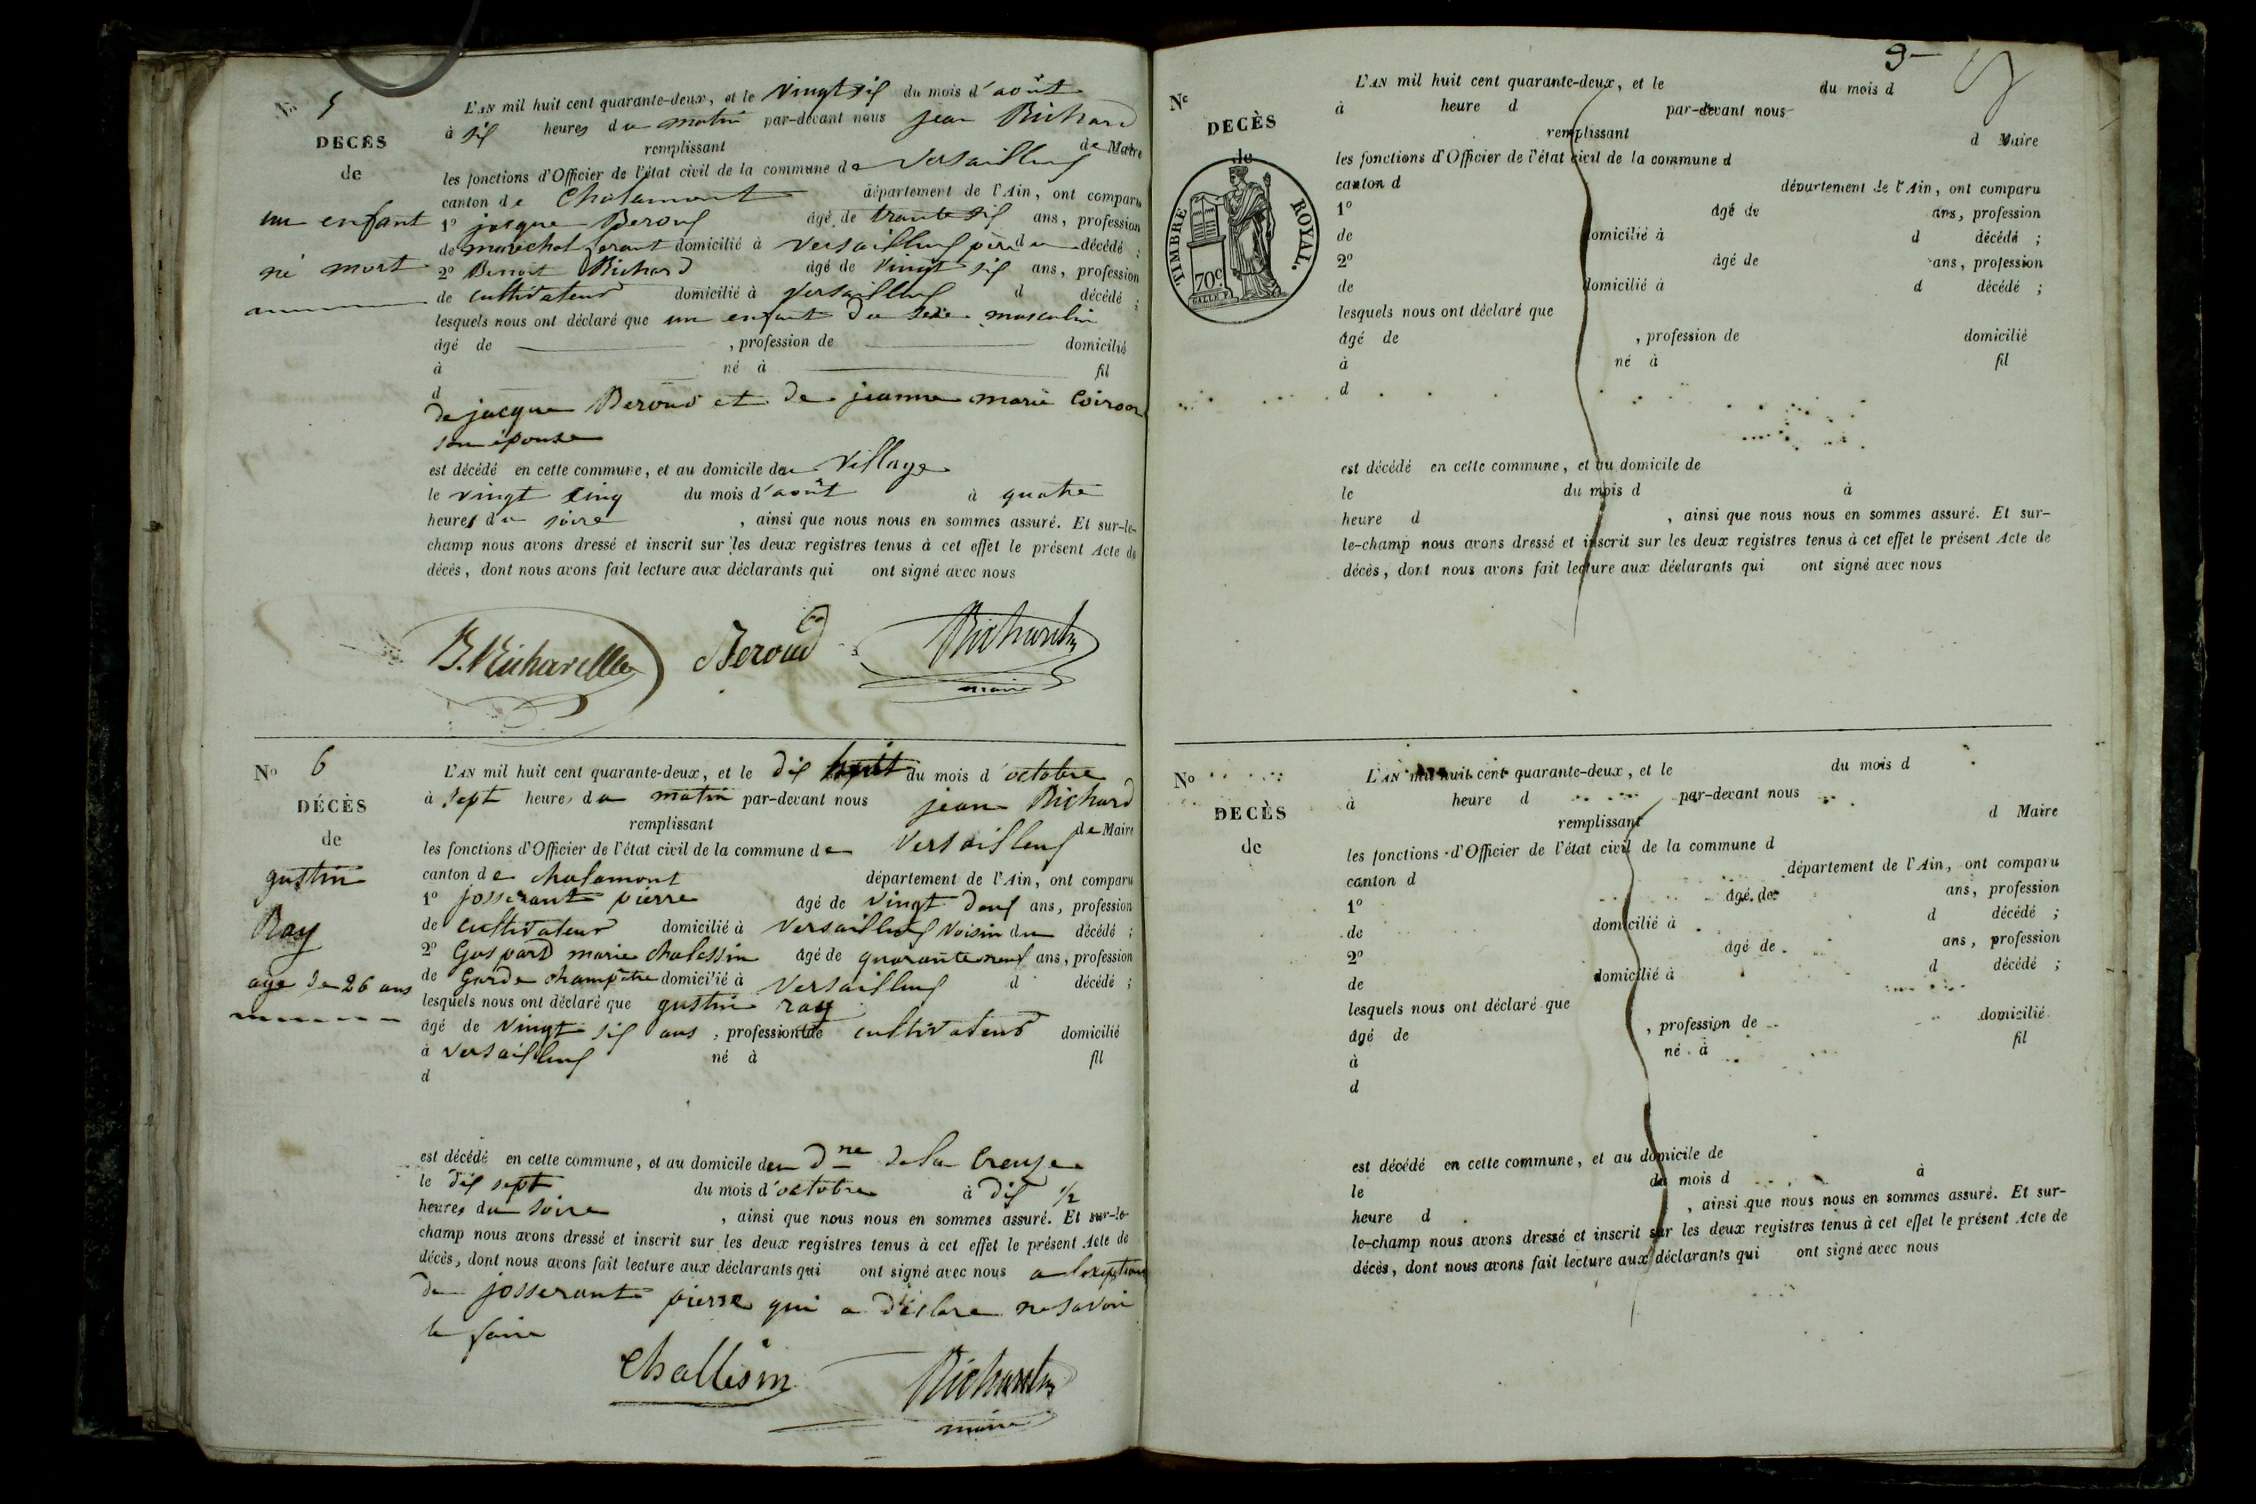 No 5
DECÈS
de
un enfant
né mort
L'AN mil huit cent quarante-deux, et le vingt six du mois d'août
à six heures du matin par-devant nous jean Richard
remplissant de Maire
les fonctions d'Officier de l'état civil de la commune de Versailleux
canton de Chalamont département de l'Ain, ont comparu
1o jacque Beroux âgé de trante six ans, profession
de marechal ferant domicilié à Versailleux père du décédé ;
2o Benoit Richard âgé de vingt six ans, profession
de cultivateur domicilié à Versailleux d décédé ;
lesquels nous ont déclaré que un enfant du sexe masculin
âgé de , profession de domicilié
à né à fil
d
de jacque Beroud et de jeanne marie Coiron
son épouse
est décédé en cette commune, et au domicile du Village
le vingt cinq du mois d'août à quatre
heures du soire , ainsi que nous nous en sommes assuré. Et sur-le-
champ nous avons dressé et inscrit sur les deux registres tenus à cet effet le présent Acte de
décès, dont nous avons fait lecture aux déclarants qui ont signé avec nous
Beroud
maire
No 6
DÉCÈS
de
gustin
Ray
age de 26 ans
L'AN mil huit cent quarante-deux, et le dix huit du mois d'octobre
à sept heures du matin par-devant nous jean Richard
remplissant de Maire
les fonctions d'Officier de l'état civil de la commune de Versailleux
canton de chalamont département de l'Ain, ont comparu
1o josserant pierre âgé de vingt deux ans, profession
de cultivateur domicilié à Versailleux Voisin du décédé ;
2o Gaspard marie chalessin âgé de quarante neuf ans, profession
de Garde champêtre domicilié à Versailleux d décédé ;
lesquels nous ont déclaré que gustin ray
âgé de vingt six ans , profession de cultivateur domicilié
à Versailleux né à fil
d
est décédé en cette commune, et au domicile du Dne de la Creuse
le dix sept du mois d'octobre à dix 1/2
heures du soire , ainsi que nous nous en sommes assuré. Et sur-le-
champ nous avons dressé et inscrit sur les deux registres tenus à cet effet le présent Acte de
décès, dont nous avons fait lecture aux déclarants qui ont signé avec nous a lexeption
de josserant pierre qui a déclare ne savoir
le faire
challesin
maire
9
No
DECÈS
de
TIMBRE ROYAL.
70c.
L'AN mil huit cent quarante-deux, et le du mois d
à heure d par-devant nous
remplissant d Maire
les fonctions d'Officier de l'état civil de la commune d
canton d département de l'Ain, ont comparu
1o âgé de ans, profession
de domicilié à d décédé ;
2o âgé de ans, profession
de domicilié à d décédé ;
lesquels nous ont déclaré que
âgé de , profession de domicilié
à né à fil
d
est décédé en cette commune, et au domicile de
le du mois d à
heure d , ainsi que nous nous en sommes assuré. Et sur-
le-champ nous avons dressé et inscrit sur les deux registres tenus à cet effet le présent Acte de
décès, dont nous avons fait lecture aux déclarants qui ont signé avec nous
No
DECÈS
de
L'AN mil huit cent quarante-deux, et le du mois d
à heure d par-devant nous
remplissant d Maire
les fonctions d'Officier de l'état civil de la commune d
canton d département de l'Ain, ont comparu
1o âgé de ans, profession
de domicilié à d décédé ;
2o âgé de ans, profession
de domicilié à d décédé ;
lesquels nous ont déclaré que
âgé de , profession de domicilié
à né à fil
d
est décédé en cette commune, et au domicile de
le du mois d à
heure d , ainsi que nous nous en sommes assuré. Et sur-
le-champ nous avons dressé et inscrit sur les deux registres tenus à cet effet le présent Acte de
décès, dont nous avons fait lecture aux déclarants qui ont signé avec nous